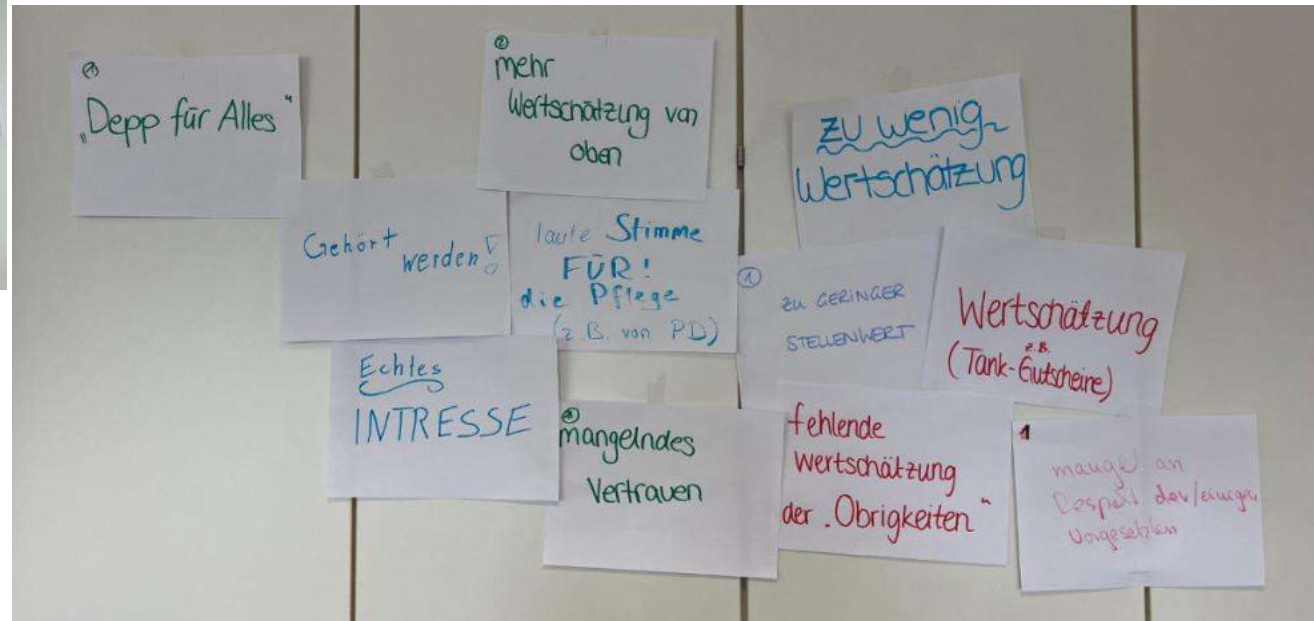 ①
„Depp für Alles“
②
mehr
Wertschätzung von
oben
zu wenig
Wertschätzung
Gehört
werden!
laute Stimme
FÜR!
die Pflege
(z.B. von PD)
①
ZU GERINGER
STELLENWERT
Wertschätzung
z.B.
(Tank-Gutscheine)
Echtes
INTRESSE
mangelndes
Vertrauen
fehlende
Wertschätzung
der „Obrigkeiten“
1
mangel an
Respekt der/einiger
Vorgesetzten